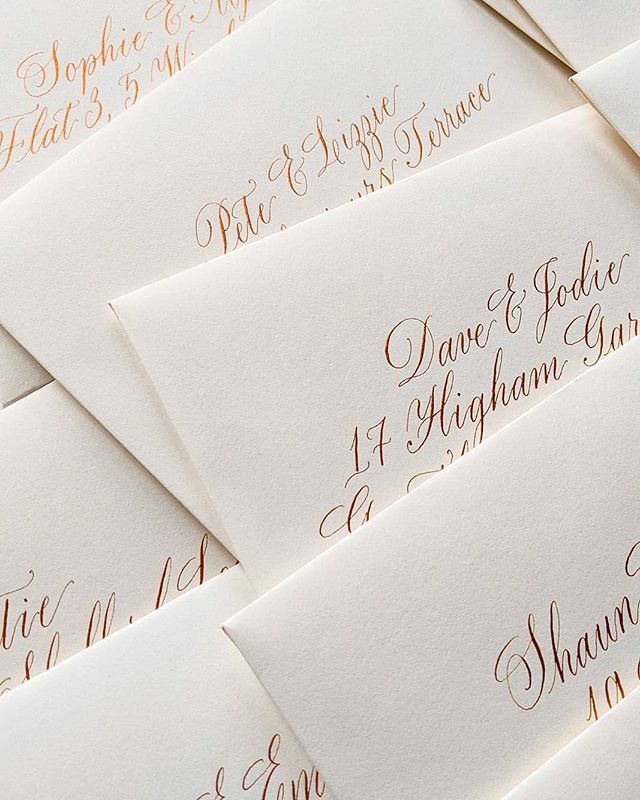 Sophie &
Flat 3, 5
Pete & Lizzie
Terrace
Dave & Jodie
17 Higham Gar
Shaun
19
tie
& Em